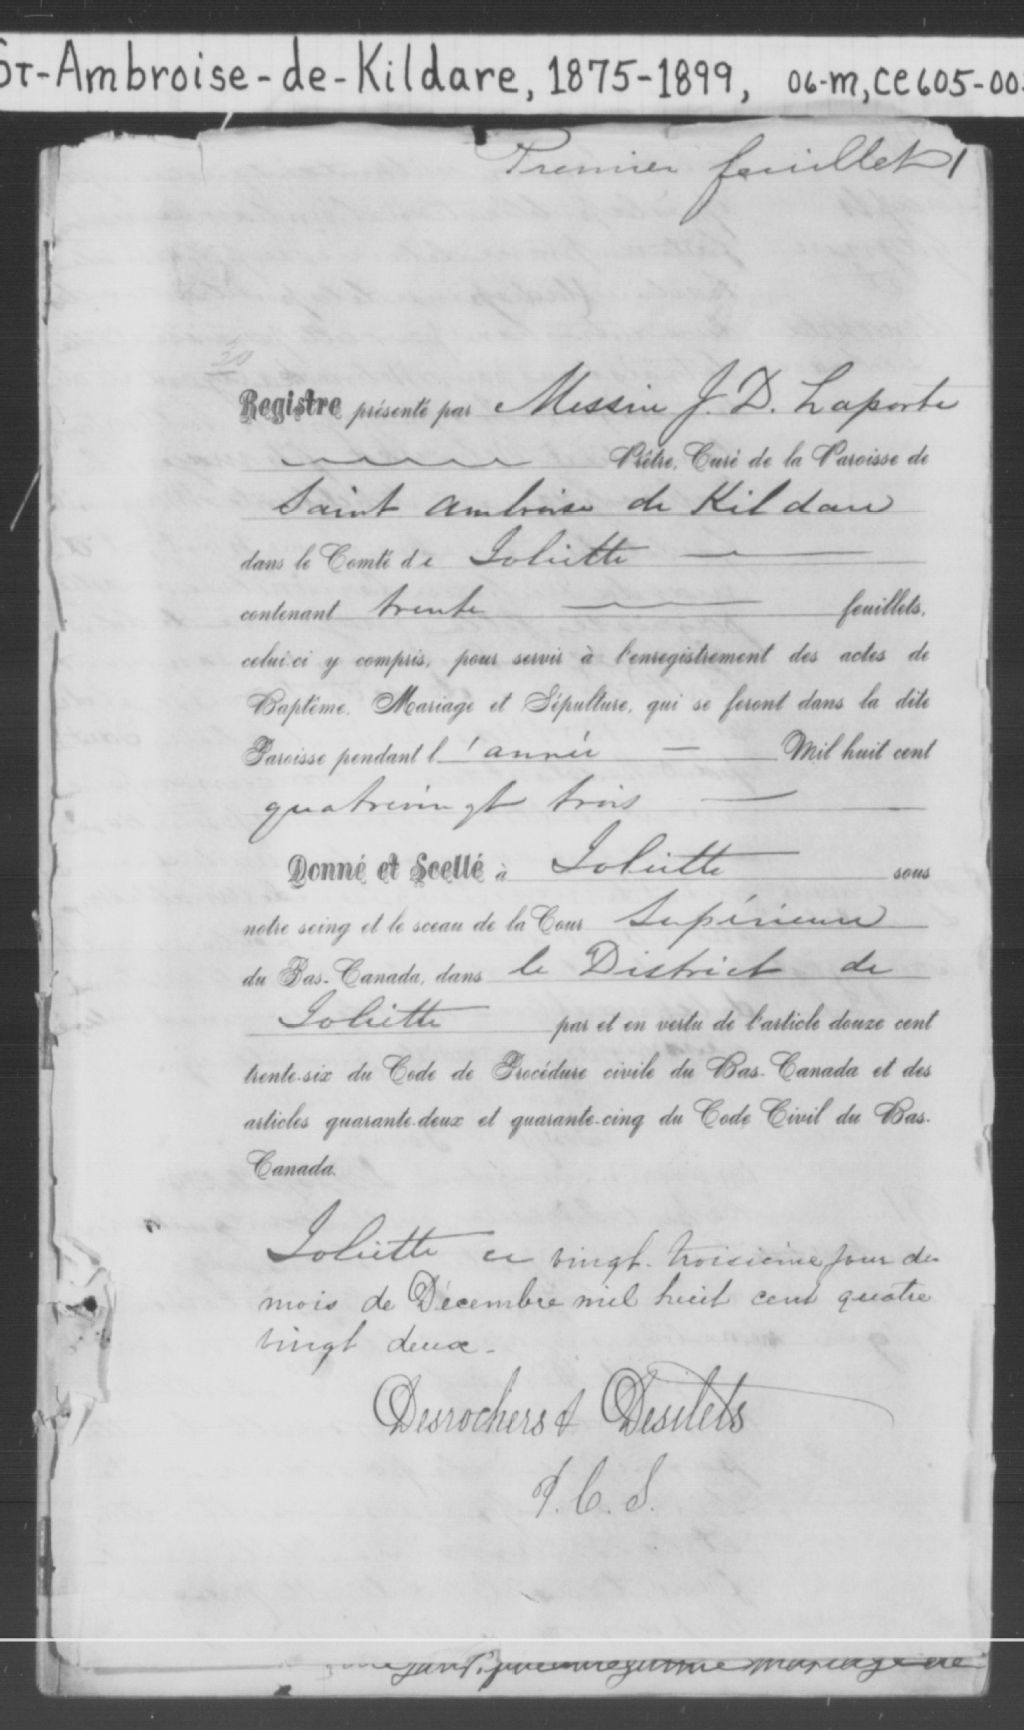 St-Ambroise-de-Kildare, 1875-1899, 06-m, CE605-00
Premier feuillet 1
30
Registre présenté par Messire J. D. Laporte
Prêtre, Curé de la Paroisse de
Saint Ambroise de Kildare
dans le Comté de Joliette
contenant trente feuillets,
celui-ci y compris, pour servir à l'enregistrement des actes de
Baptême, Mariage et Sépulture, qui se feront dans la dite
Paroisse pendant l'année Mil huit cent
quatrevingt trois
Donné et Scellé à Joliette sous
notre seing et le sceau de la Cour Supérieure
du Bas-Canada, dans le District de
Joliette par et en vertu de l'article douze cent
trente-six du Code de Procédure civile du Bas-Canada et des
articles quarante-deux et quarante-cinq du Code Civil du Bas-
Canada.
Joliette ce vingt-troisième jour du
mois de Décembre mil huit cent quatre
vingt deux.
Desrochers & Desilets
P. C. S.
mariage de